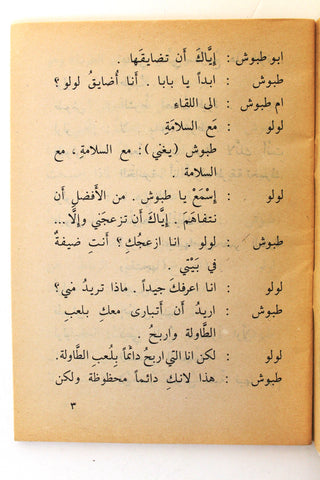 ابو طبوش : إيَّاكَ أَن تضايقَها .
طبوش : ابداً يا بابا . أنا أُضايقُ لولو ؟
ام طبوش : الى اللقاءِ
لولو : مَع السلامَةِ
طبوش (يغني) : مع السلامةِ ، مع
السلامة
لولو : إسْمَعْ يا طبوش . من الأفضل أن
نتفاهَمَ . إيَّاكَ أَن تزعجَني وإلّا...
طبوش : لولو . انا ازعجُكِ ؟ أنتِ ضيفةٌ
في بَيْتي .
لولو : انا اعرفكَ جيداً . ماذا تريدُ مني؟
طبوش : اريدُ أن أتبارى معكِ بلعبِ
الطَّاولة واربحُ .
لولو : لكن انا التي اربحُ دائماً بِلُعبِ الطَّاولة.
طبوش : هذا لانكِ دائماً محظوظة ولكن
٣